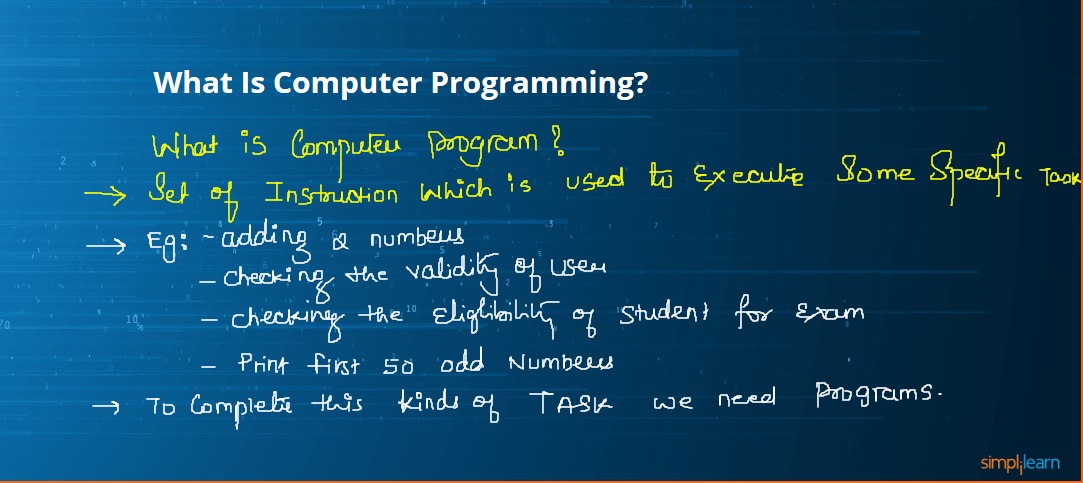 What Is Computer Programming?
What is Computer program?
→ Set of Instruction which is used to Execute Some Specific Task
→ Eg: - adding 2 numbers
- checking the validity of user
- checking the Eligibility of Student for Exam
- Print first 50 odd Numbers
→ To Complete this kinds of TASK we need programs.
simplilearn